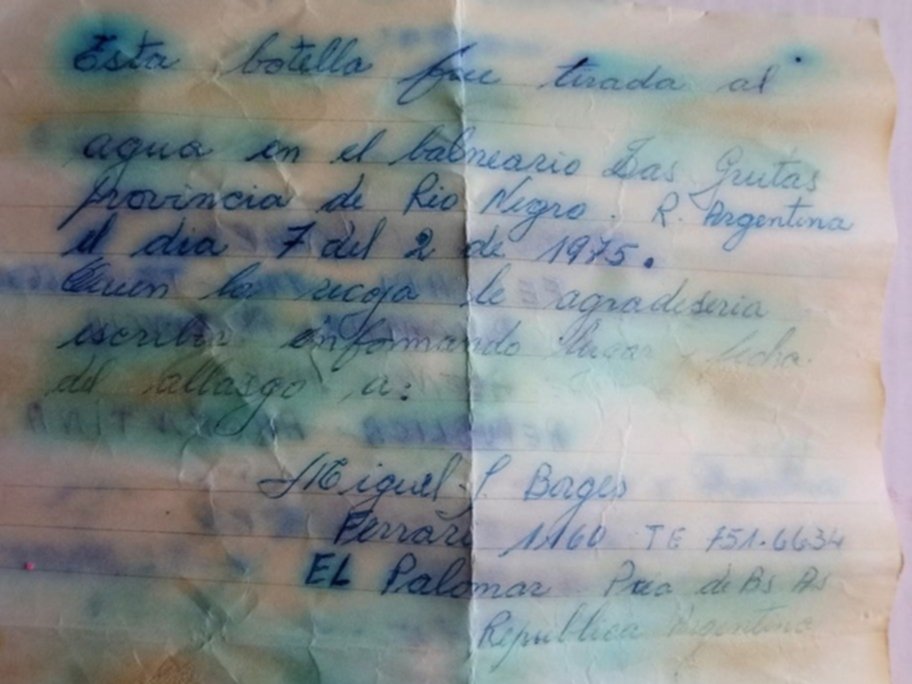 Esta botella fue tirada al
agua en el balneario Las Grutas
provincia de Rio Negro. R. Argentina
el dia 7 del 2 de 1975.
Quien la recoja le agradeseria
escribir informando lugar y fecha
del allasgo a:
Miguel J. Borges
Ferrari 1160 TE 751-6634
EL Palomar Pcia de Bs As
Republica Argentina